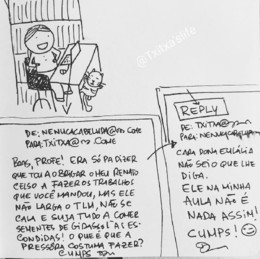 @Txitxa'slife
DE: NENUCACABELUDA@
PARA: TXITXA@
BOAS, PROFE! ERA SÓ PA DIZER
QUE TOU A OBRIGAR O MEU RENATO
CELSO A FAZER OS TRABALHOS
QUE VOCÊ MANDOU, MAS ELE
NÃO LARGA O TLM, NÃO SE
CALA E SUJA TUDO A COMER
SEMENTES DE GIRASSOL ÀS ES-
CONDIDAS! O QUE É QUE A
PRESSÔRA COSTUMA FAZER?
CUMPS
REPLY
DE: TXITXA@
PARA:
CARA DONA EULÁLIA
NÃO SEI O QUE LHE
DIGA.
ELE NA MINHA
AULA NÃO É
NADA ASSIM!
CUMPS!